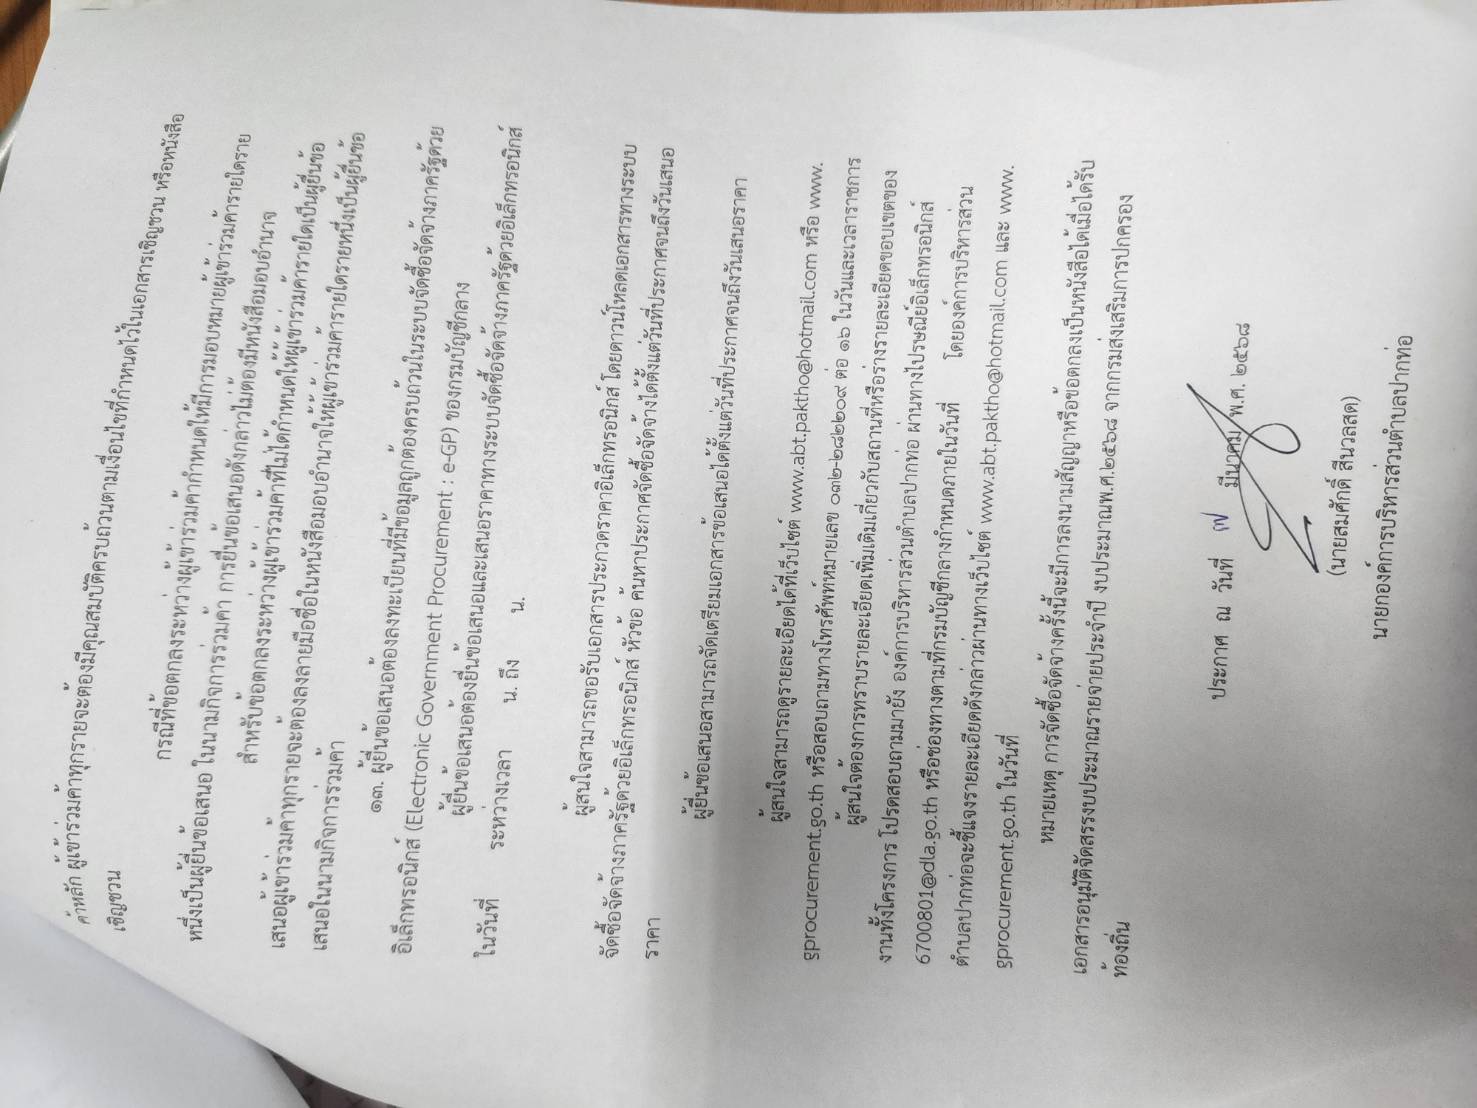 ค้าหลัก ผู้เข้าร่วมค้าทุกรายจะต้องมีคุณสมบัติครบถ้วนตามเงื่อนไขที่กำหนดไว้ในเอกสารเชิญชวน หรือหนังสือ
เชิญชวน
กรณีที่ข้อตกลงระหว่างผู้เข้าร่วมค้ากำหนดให้มีการมอบหมายผู้เข้าร่วมค้ารายใดราย
หนึ่งเป็นผู้ยื่นข้อเสนอ ในนามกิจการร่วมค้า การยื่นข้อเสนอดังกล่าวไม่ต้องมีหนังสือมอบอำนาจ
สำหรับข้อตกลงระหว่างผู้เข้าร่วมค้าที่ไม่ได้กำหนดให้ผู้เข้าร่วมค้ารายใดเป็นผู้ยื่นข้อ
เสนอผู้เข้าร่วมค้าทุกรายจะต้องลงลายมือชื่อในหนังสือมอบอำนาจให้ผู้เข้าร่วมค้ารายใดรายหนึ่งเป็นผู้ยื่นข้อ
เสนอในนามกิจการร่วมค้า
๑๓. ผู้ยื่นข้อเสนอต้องลงทะเบียนที่มีข้อมูลถูกต้องครบถ้วนในระบบจัดซื้อจัดจ้างภาครัฐด้วย
อิเล็กทรอนิกส์ (Electronic Government Procurement : e-GP) ของกรมบัญชีกลาง
ผู้ยื่นข้อเสนอต้องยื่นข้อเสนอและเสนอราคาทางระบบจัดซื้อจัดจ้างภาครัฐด้วยอิเล็กทรอนิกส์
ในวันที่ ระหว่างเวลา น. ถึง น.
ผู้สนใจสามารถขอรับเอกสารประกวดราคาอิเล็กทรอนิกส์ โดยดาวน์โหลดเอกสารทางระบบ
จัดซื้อจัดจ้างภาครัฐด้วยอิเล็กทรอนิกส์ หัวข้อ ค้นหาประกาศจัดซื้อจัดจ้างได้ตั้งแต่วันที่ประกาศจนถึงวันเสนอ
ราคา
ผู้ยื่นข้อเสนอสามารถจัดเตรียมเอกสารข้อเสนอได้ตั้งแต่วันที่ประกาศจนถึงวันเสนอราคา
ผู้สนใจสามารถดูรายละเอียดได้ที่เว็บไซต์ www.abt.paktho@hotmail.com หรือ www.
gprocurement.go.th หรือสอบถามทางโทรศัพท์หมายเลข ๐๓๒-๒๘๒๒๐๙ ต่อ ๑๖ ในวันและเวลาราชการ
ผู้สนใจต้องการทราบรายละเอียดเพิ่มเติมเกี่ยวกับสถานที่หรือร่างรายละเอียดขอบเขตของ
งานทั้งโครงการ โปรดสอบถามมายัง องค์การบริหารส่วนตำบลปากท่อ ผ่านทางไปรษณีย์อิเล็กทรอนิกส์
6700801@dla.go.th หรือช่องทางตามที่กรมบัญชีกลางกำหนดภายในวันที่ โดยองค์การบริหารส่วน
ตำบลปากท่อจะชี้แจงรายละเอียดดังกล่าวผ่านทางเว็บไซต์ www.abt.paktho@hotmail.com และ www.
gprocurement.go.th ในวันที่
หมายเหตุ การจัดซื้อจัดจ้างครั้งนี้จะมีการลงนามสัญญาหรือข้อตกลงเป็นหนังสือได้เมื่อได้รับ
เอกสารอนุมัติจัดสรรงบประมาณรายจ่ายประจำปี งบประมาณพ.ศ.๒๕๖๘ จากกรมส่งเสริมการปกครอง
ท้องถิ่น
ประกาศ ณ วันที่ ๗ มีนาคม พ.ศ. ๒๕๖๘
(นายสมศักดิ์ สีนวลสด)
นายกองค์การบริหารส่วนตำบลปากท่อ